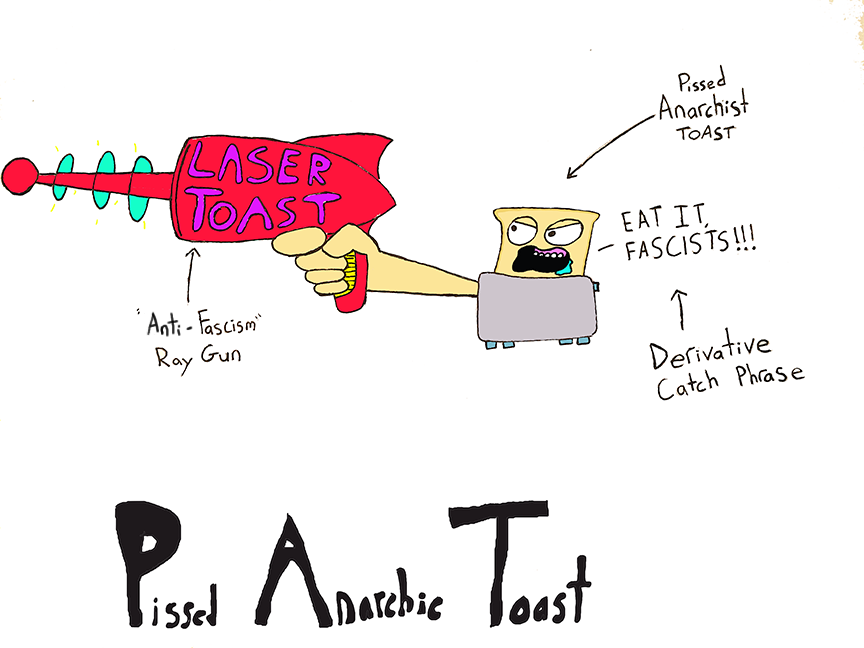 Pissed
Anarchist
TOAST
LASER
TOAST
EAT IT,
FASCISTS!!!
"Anti-Fascism"
Ray Gun
Derivative
Catch Phrase
Pissed Anarchic Toast